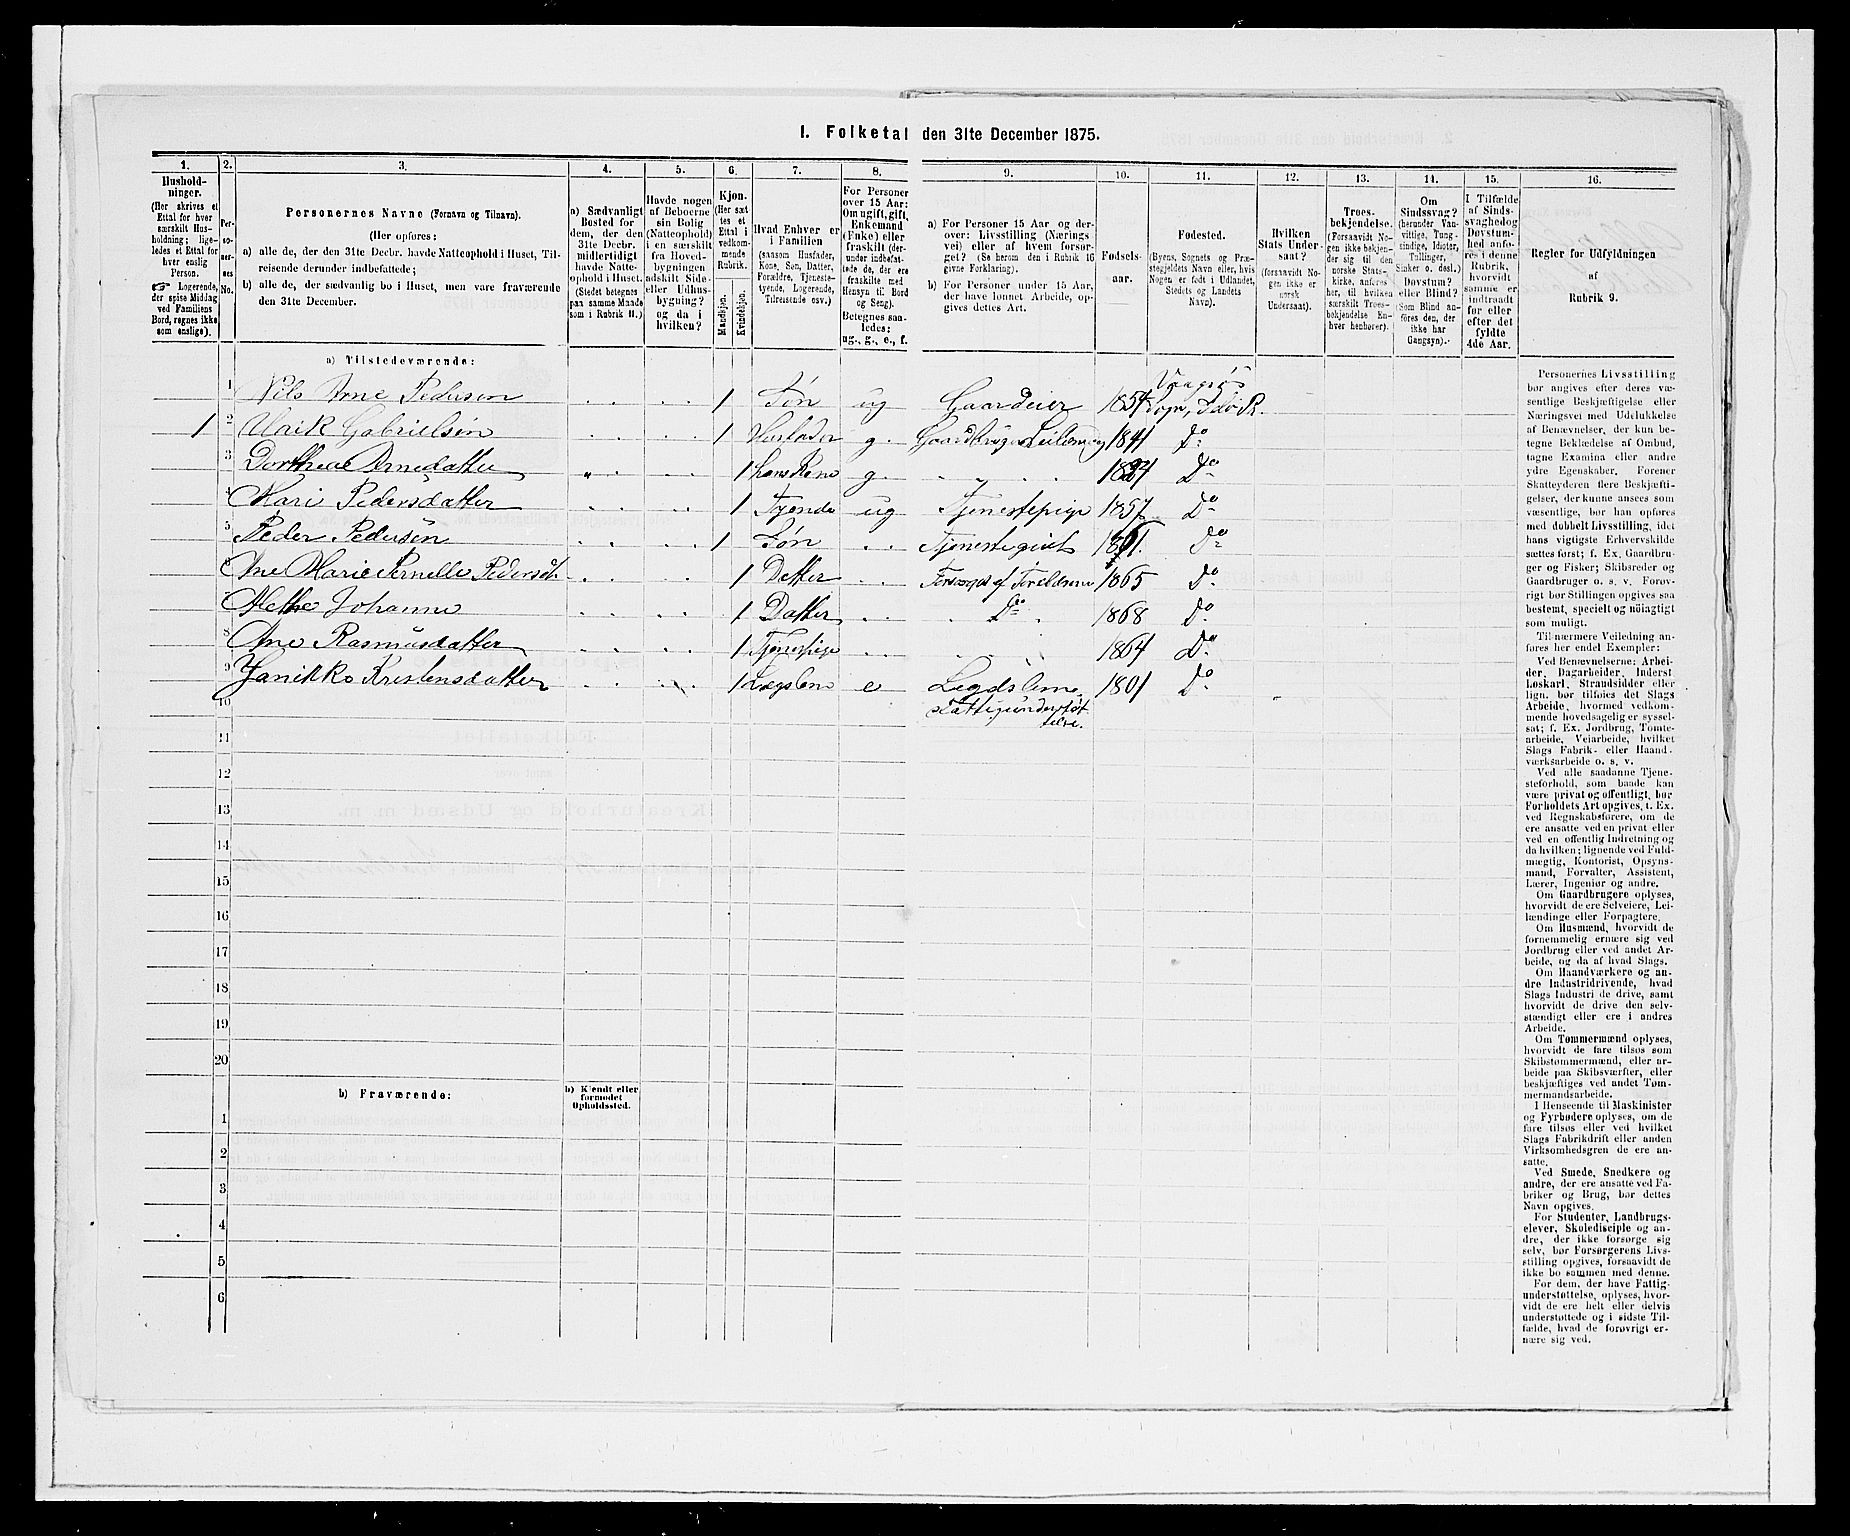 1. Folketal den 31te December 1875.
1. 2. 3. 4. 5. 6. 7. 8. 9. 10. 11. 12. 13. 14. 15. 16.
Hushold-
ninger.
(Her skrives et
Ettal for hver
særskilt Hus-
holdning; lige-
ledes et Ettal for
hver enslig
Person.
☞ Logerende,
der spise Middag
ved Familiens
Bord, regnes ikke
som enslige).
Per-
so-
ner-
nes
No.
Personernes Navne (Fornavn og Tilnavn).
(Her opføres:
a) alle de, der den 31te Decbr. havde Natteophold i Huset, Til-
reisende derunder indbefattede;
b) alle de, der sædvanlig bo i Huset, men vare fraværende
den 31te December.
a) Sædvanligt
Bosted for
dem, der den
31te Decbr.
midlertidigt
havde Natte-
ophold i Huset.
(Stedet betegnes
paa samme Maade
som i Rubrik 11.)
Havde nogen
af Beboerne
sin Bolig
(Natteophold)
i en særskilt
fra Hoved-
bygningen
adskilt Side-
eller Udhus-
bygning?
og da i
hvilken?
Kjøn.
(Her sæt-
tes et
Ettal i
vedkom-
mende
Rubrik.
Mandkjøn.
Kvindekjøn.
Hvad Enhver er
i Familien
(saasom Husfader,
Kone, Søn, Datter,
Forældre, Tjeneste-
tyende, Logerende,
Tilreisende osv.)
For Personer
over 15 Aar:
Om ugift, gift,
Enkemand
(Enke) eller
fraskilt (der-
under indbefat-
tede de, der ere
fraskilte med
Hensyn til Bord
og Seng).
Betegnes saa-
ledes:
ug., g., e., f.
a) For Personer 15 Aar og der-
over: Livsstilling (Nærings-
vei) eller af hvem forsør-
get? (Se herom den i Rubrik 16
givne Forklaring).
b) For Personer under 15 Aar,
der have lønnet Arbeide, op-
gives dettes Art.
Fødsels-
aar.
Fødested.
(Byens, Sognets og Præ-
stegjeldets Navn eller, hvis
Nogen er født i Udlandet,
Stedets og Landets
Navn).
Hvilken
Stats Under-
saat?
(forsaavidt No-
gen ikke er
norsk
Undersaat).
Troes-
bekjendelse.
(Forsaavidt No-
gen ikke bekjen-
der sig til den
norske Stats-
kirke, anføres
her, til hvilken
særskilt Troes-
bekjendelse En-
hver henhører).
Om
Sindssvag?
(herunder Van-
vittige, Tung-
sindige, Idioter,
Tullinger,
Sinker o. desl.)
Døvstum?
eller Blind?
(Som Blind an-
føres den, der
ikke har
Gangsyn).
I Tilfælde
af Sinds-
svaghed og
Døvstum-
hed anfø-
res i denne
Rubrik,
hvorvidt
samme er
indtraadt
før eller
efter det
fyldte
4de Aar.
Regler for Udfyldningen
af
Rubrik 9.
a) Tilstedeværende:
Vaagsøs
1 Nils Arne Pedersen 1 Søn ug Gaardeier 1854 Sogn, Selø P.
1 2 Ulrik Gabrielsen 1 Husfader g. Gaardbruger Leilænding 1841 Do
3 Dorthea Arnedatter 1 hans Kone g. Do
4 Mari Pedersdatter 1 Tyende ug Tjenestepige 1857 Do
5 Peder Pedersen 1 Søn Tjenestegivt 1861. Do
6 Ane Marie Pernelle Pedersdt. 1 Datter Forsørges af Forældrene 1865 Do
Methe Johanne 1 Datter Do 1868 Do
8 Ane Rasmusdatter 1 Tjenestpige 1864 Do
9 Janikke Kristensdatter 1 Lægslem e Legdslem 1801 Do
10 Fattigunderstøt-
telse.
11
12
13
14
15
16
17
18
19
20
b) Fraværende:
b) Kjendt eller
formodet
Opholdssted.
1
2
3
4
5
6
Personernes Livsstilling
bør angives efter deres væ-
sentlige Beskjæftigelse eller
Næringsvei med Udelukkelse
af Benævnelser, der kun be-
tegne Beklædelse af Ombud,
tagne Examina eller andre
ydre Egenskaber. Forener
Skatteyderen flere Beskjæfti-
gelser, der kunne ansees som
væsentlige, bør han opføres
med dobbelt Livsstilling, idet
hans vigtigste Erhvervskilde
sættes først; f. Ex. Gaardbru-
ger og Fisker; Skibsreder og
Gaardbruger o. s. v. Forøv-
rigt bør Stillingen opgives saa
bestemt, specielt og nöiagtigt
som muligt.
Til nærmere Veiledning an-
føres her endel Exempler:
Ved Benævnelserne: Arbei-
der, Dagarbeider, Inderst
Løskarl, Strandsidder eller
lign. bør tilføies det Slags
Arbeide, hvormed vedkom-
mende hovedsagelig er syssel-
sat; f. Ex. Jordbrug, Tomte-
arbeide, Veiarbeide, hvilket
Slags Fabrik- eller Haand-
værksarbeide o. s. v.
Ved alle saadanne Tjene-
steforhold, som baade kan
være privat og offentligt, bør
Forholdets Art opgives, t. Ex.
ved Regnskabsførere, om de
ere ansatte ved en privat eller
ved en offentlig Indretning og
da hvilken; lignende ved Fuld-
mægtig, Kontorist, Opsyns-
mand, Forvalter, Assistent,
Lærer, Ingeniør og andre.
Om Gaardbrugere oplyses,
hvorvidt de ere Selveiere, Lei-
lændinge eller Forpagtere.
Om Husmænd, hvorvidt de
fornemmelig ernære sig ved
Jordbrug eller ved andet Ar-
beide, og da af hvad Slags.
Om Haandværkere og an-
dre Industridrivende, hvad
Slags Industri de drive, samt
hvorvidt de drive den selv-
stændigt eller ere i andres
Arbeide.
Om Tømmermænd oplyses,
hvorvidt de fare tilsøs som
Skibstømmermænd, eller ar-
beide paa Skibsværfter, eller
beskjæftiges ved andet Tøm-
mermandsarbeide.
I Henseende til Maskinister
og Fyrbødere oplyses, om de
fare tilsøs eller ved hvilket
Slags Fabrikdrift eller anden
Virksomhedsgren de ere an-
satte.
Ved Smede, Snedkere og
andre, der ere ansatte ved Fa-
briker og Brug, bør dettes
Navn opgives.
For Studenter, Landbrugs-
elever, Skoledisciple og an-
dre, der ikke forsørge sig
selv, bør Forsørgerens Livs-
stilling opgives, forsaavidt de
ikke bo sammen med denne.
For dem, der have Fattig-
understøttelse, oplyses, hvor-
vidt de ere helt eller delvis
understøttede og i sidste Til-
fælde, hvad de forøvrigt er-
nære sig ved.